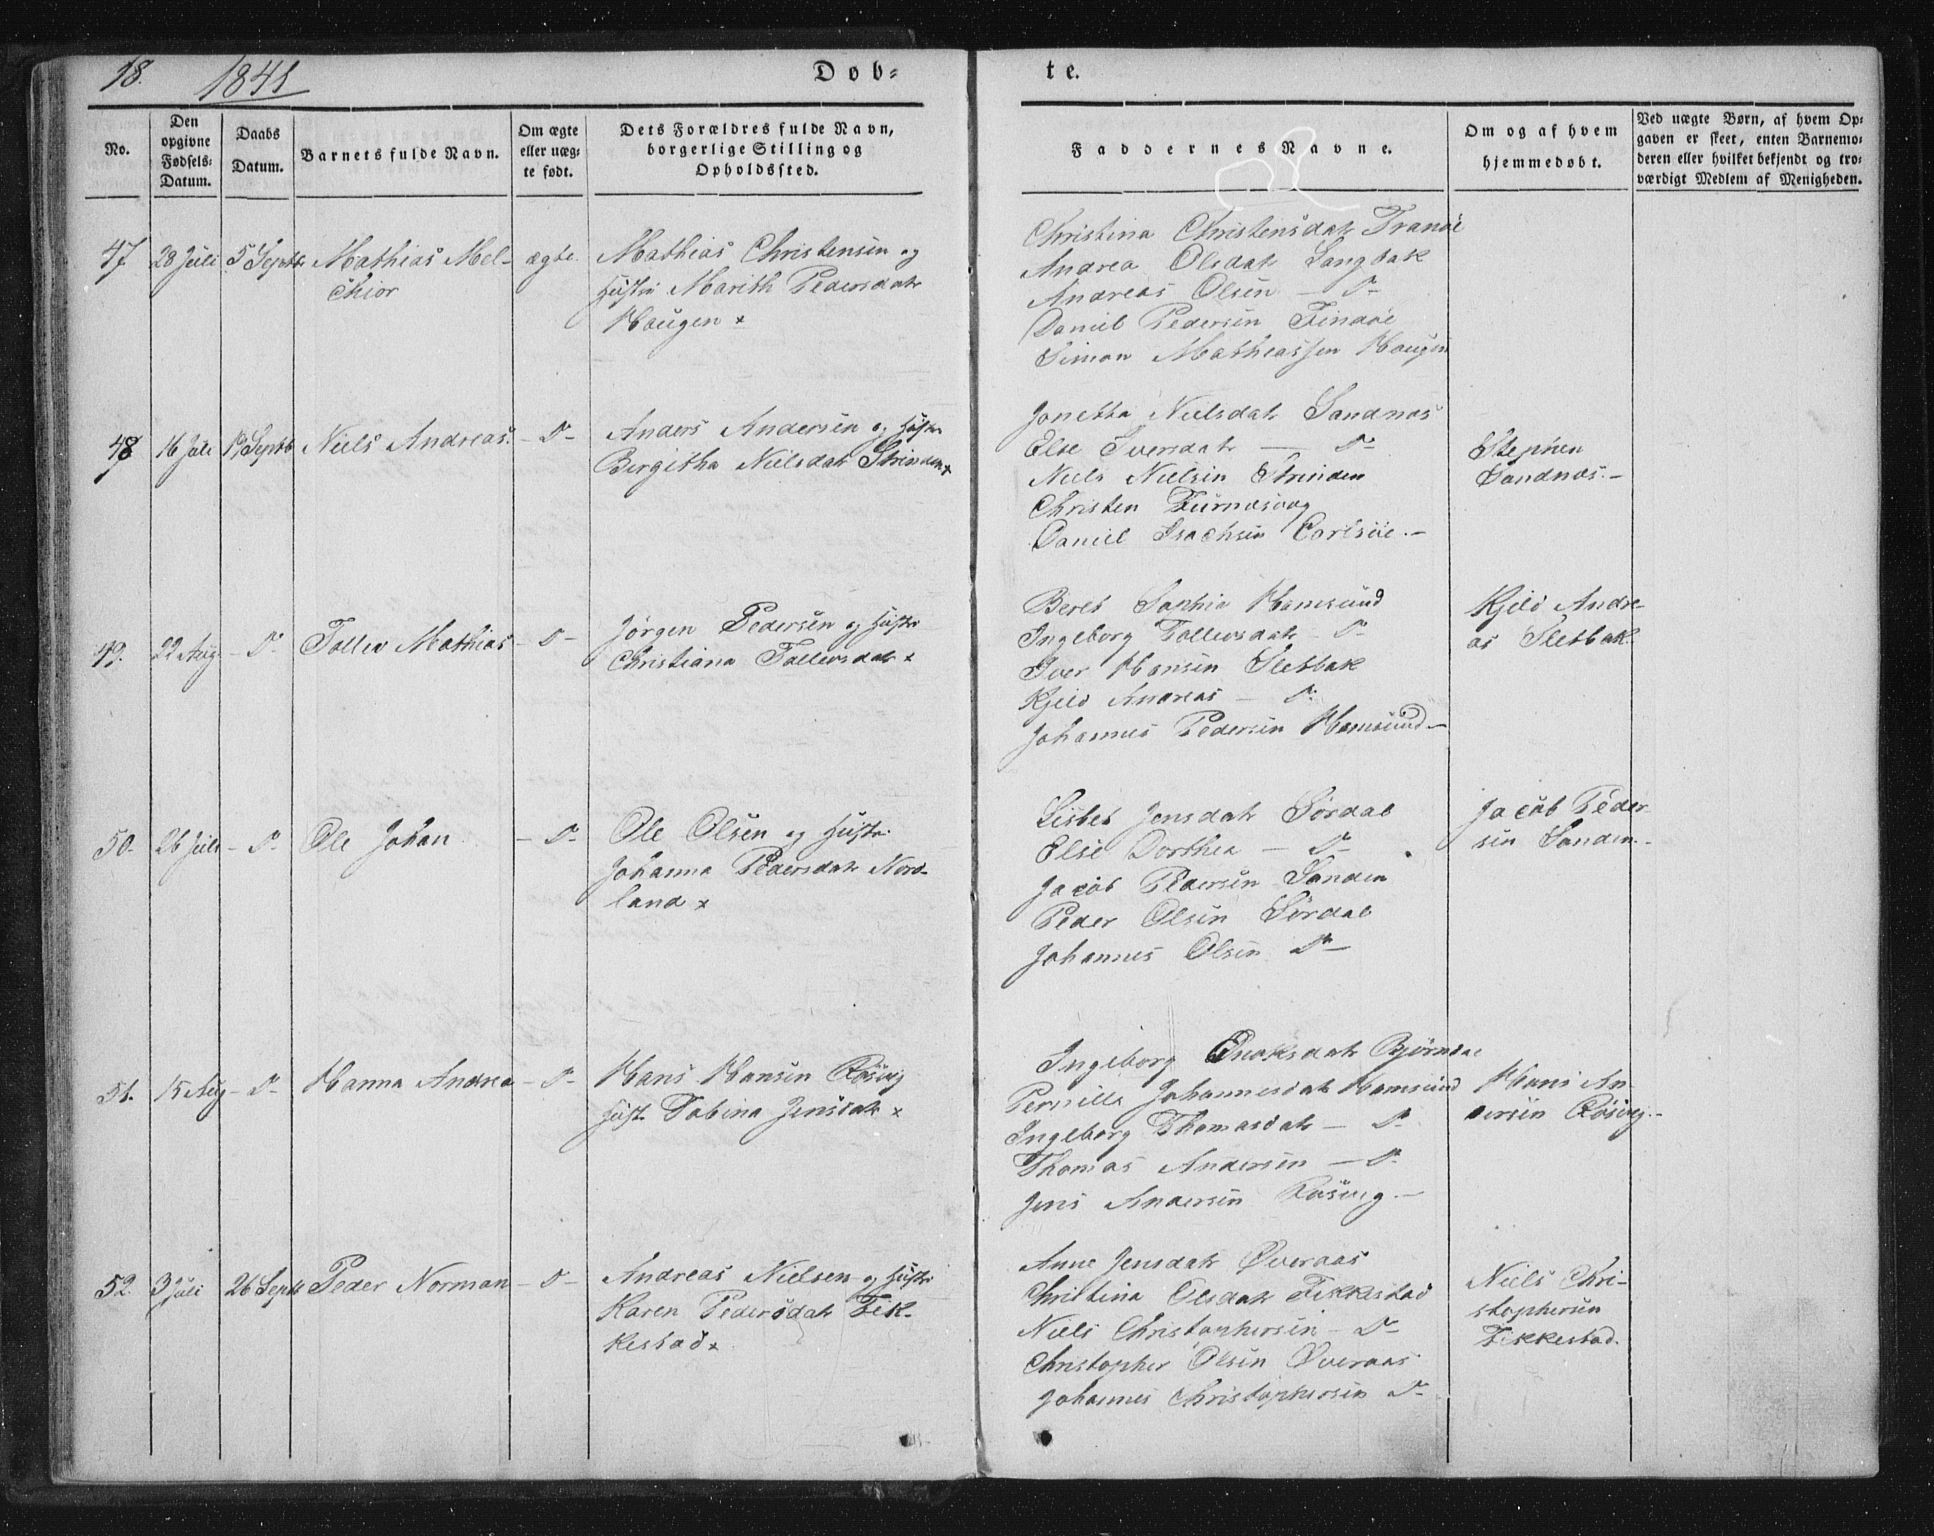 18. 1841 Døb= te.
No.
Den opgivne Fødsels= Datum.
Daabs Datum.
Barnets fulde Navn.
Om ægte eller uæg= te født.
Dets Forældres fulde Navn, borgerlige Stilling og Opholdssted.
Faddernes Navne.
Om og af hvem hjemmedøbt.
Ved uægte Børn, af hvem Op= gaven er skeet, enten Barnemo= deren eller hvilket bekjendt og tro= værdigt Medlem af Menigheden.
47. 28 Juli 5 Septb Mathias Mel-
chior
ægte
Mathias Christensen og
Hustr Marith Pedersdatr
Haugen x
Christina Christensdatr Tranöe
Andrea Olsdatr Langbak
Andreas Olsen — Do
Daniel Pedersen Findöe
Simon Matheassen Haugen
48 16 Juli 19 Septb Niels Andreas. - Do -
Anders Andersen og Hustr
Birgitha Nielsdatr Strinden x
Jonetta Nielsdatr Sandnæs
Else Iversdatr — Do
Niels Nielsen Strinden
Christen Furnæsvog
Daniel Isachsen Carlsöe. -
Stephen
Sandnæs. -
49. 22 Aug - Do - Tollev Mathias - Do -
Jørgen Pedersen og Hustr
Christiana Tollevsdatr x
Beret Sophia Hamsund
Ingeborg Tollevsdatr - Do
Iver Hansen Sletbak
Kjeld Andreas — Do
Johannes Pedersen Hamsund -
Kjeld Andre-
as Sletbak.
50. 26 Juli - Do Ole Johan - Do -
Ole Olsen og Hustr
Johanna Pedersdatr Nord-
land x
Lisbet Jensdatr Sørdal
Else Dorthea — Do
Jacob Pedersen Sanden
Peder Olsen Sørdal
Johannes Olsen Do
Jacob Peder-
sen Sanden. -
51. 15 Aug - Do Hanna Andrea - Do -
Hans Hansen Røsvig
Hust Tabina Jensdatr x
Ingeborg Enoksdatr Bjørndal
Pernille Johannesdatr Hamsund
Ingeborg Thomasdatr — Do
Thomas Andersen — Do
Jens Andersen Røsvig. -
Hans An-
dersen Røsvig. -
52. 3 Juli 26 Septb Peder Norman - Do -
Andreas Nielsen og Hustr
Karen Pedersdatr Fik-
kestad x
Anne Jensdatr Øveraas
Christina Olsdatr Fikkestad
Niels Christophersen - Do
Christopher Olsen Øveraas
Johannes Christophersen Do
Niels Chri-
stophersen
Fikkestad.